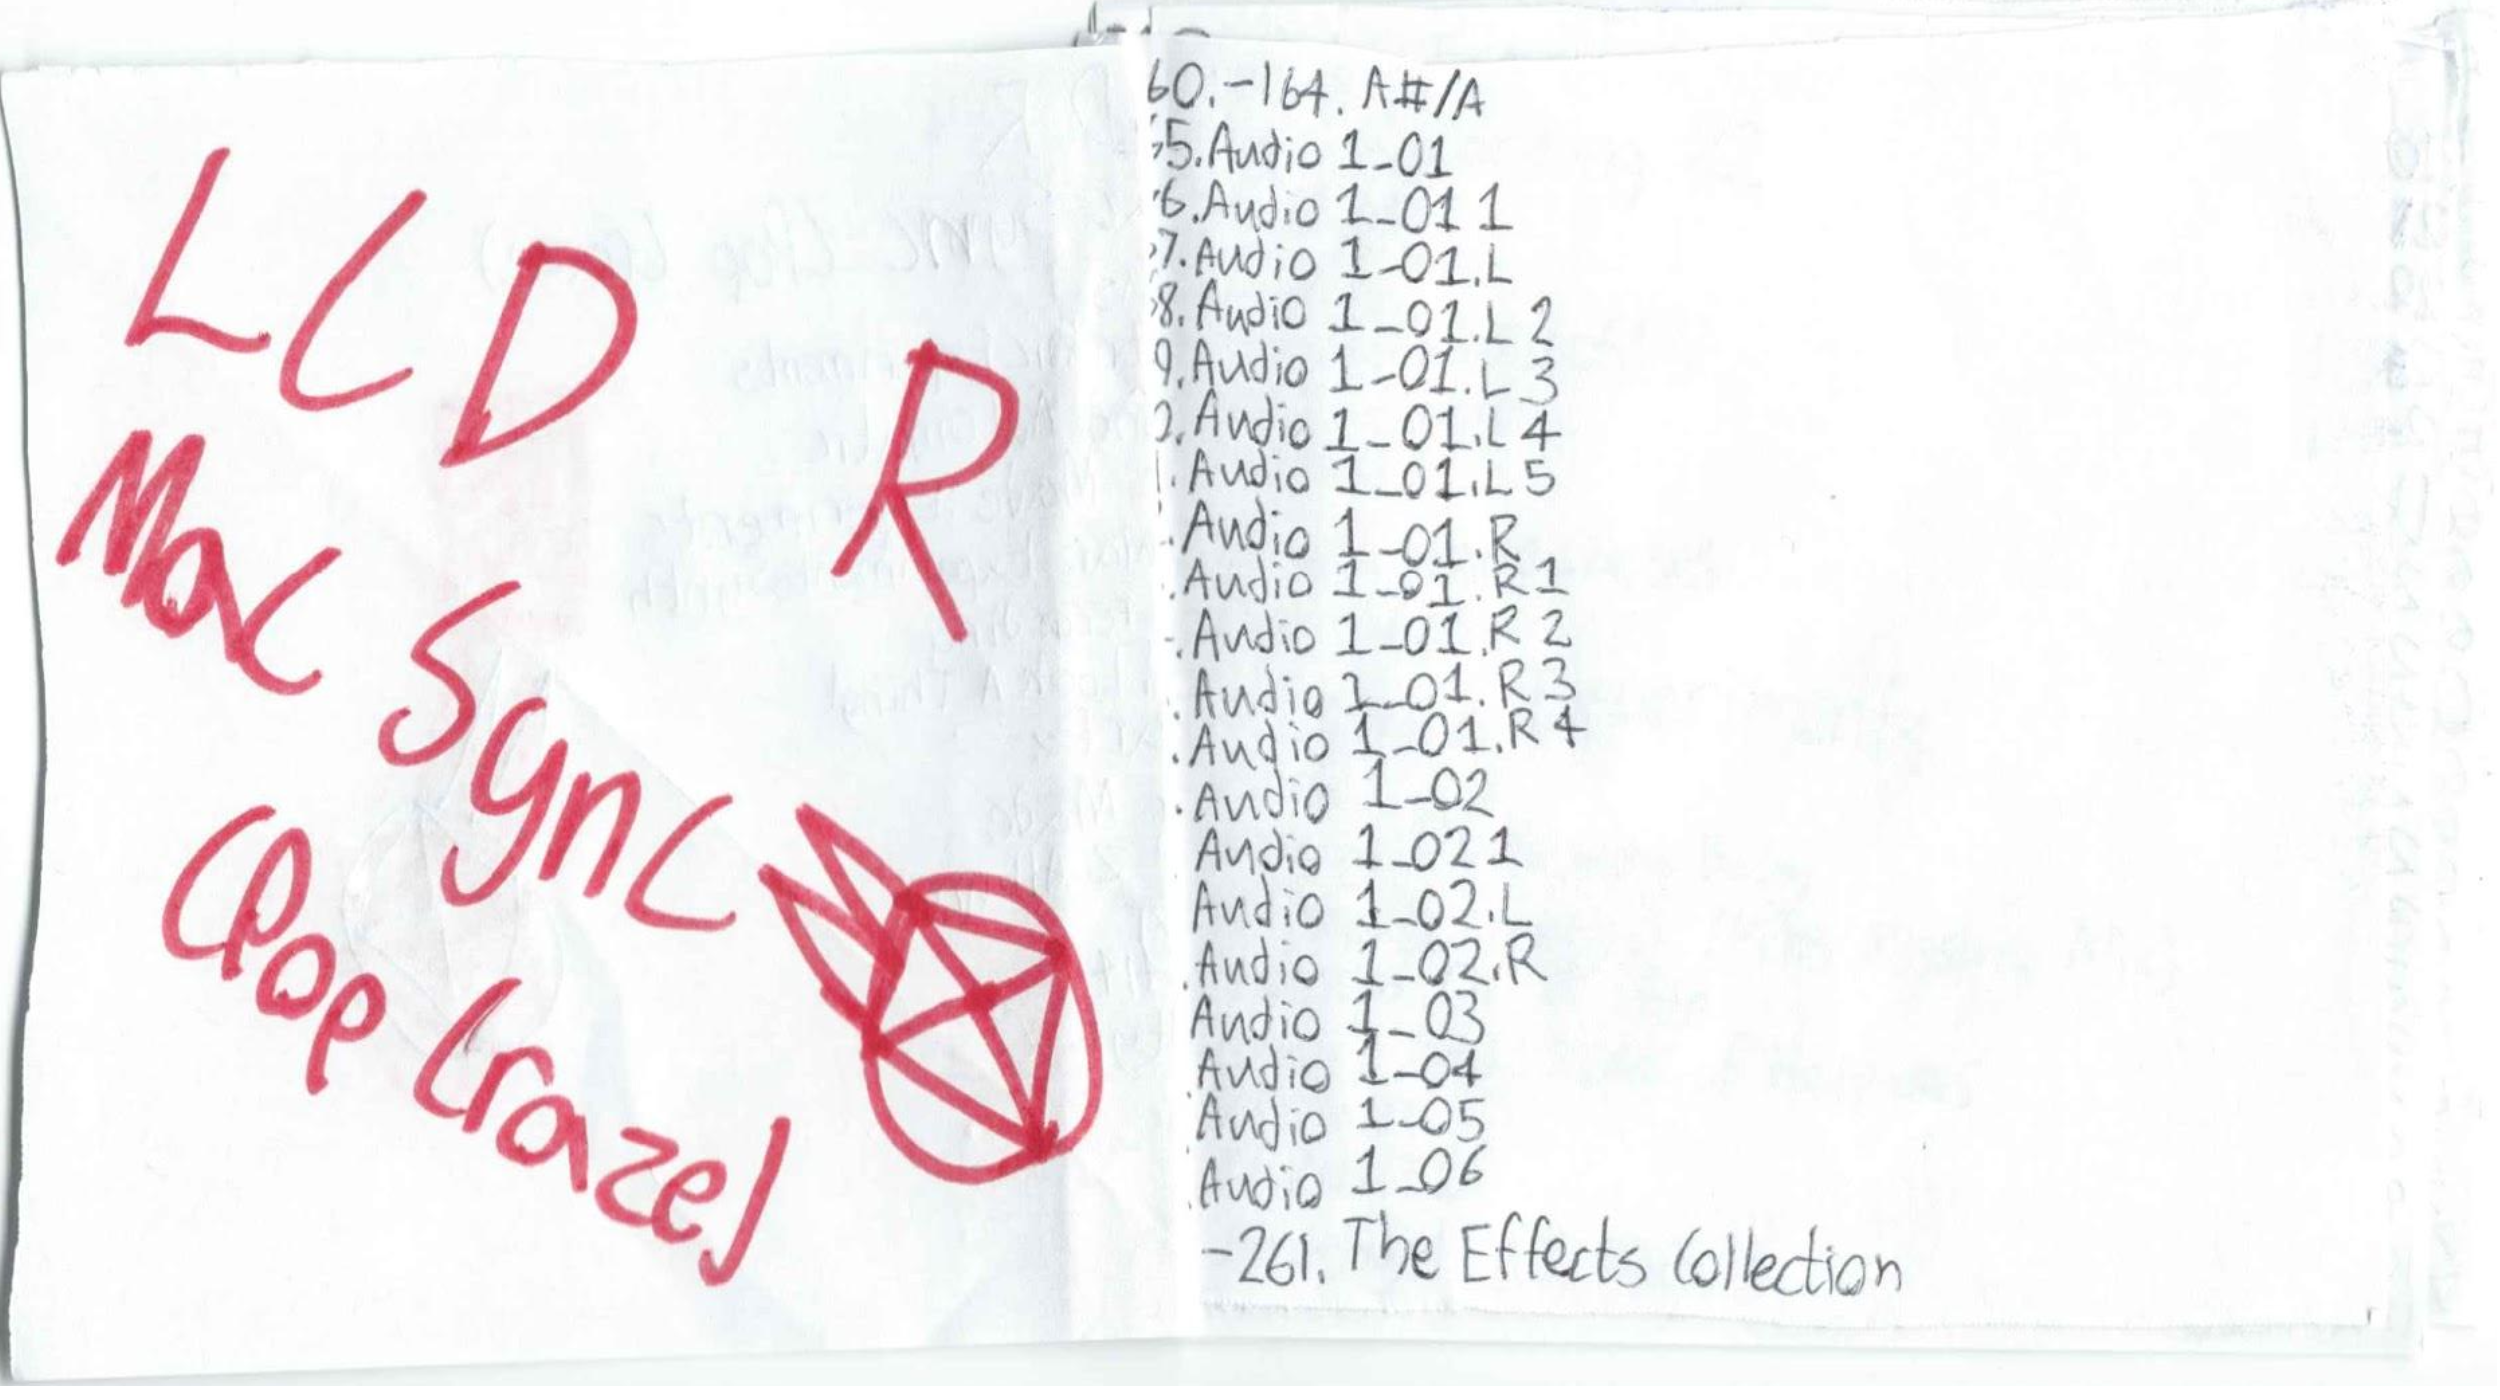 LCD R
Mac Sync
(Pop Craze)
60.-164. A#/A
5.Audio 1-01
6.Audio 1-01 1
7.Audio 1-01.L
8.Audio 1-01.L 2
9.Audio 1-01.L 3
Audio 1-01.L 4
1.Audio 1-01.L 5
.Audio 1-01.R
.Audio 1-01.R 1
.Audio 1-01.R 2
.Audio 1-01.R 3
.Audio 1-01.R 4
.Audio 1-02
Audio 1-02 1
Audio 1-02.L
.Audio 1-02.R
Audio 1-03
.Audio 1-04
Audio 1-05
.Audio 1-06
-261. The Effects Collection